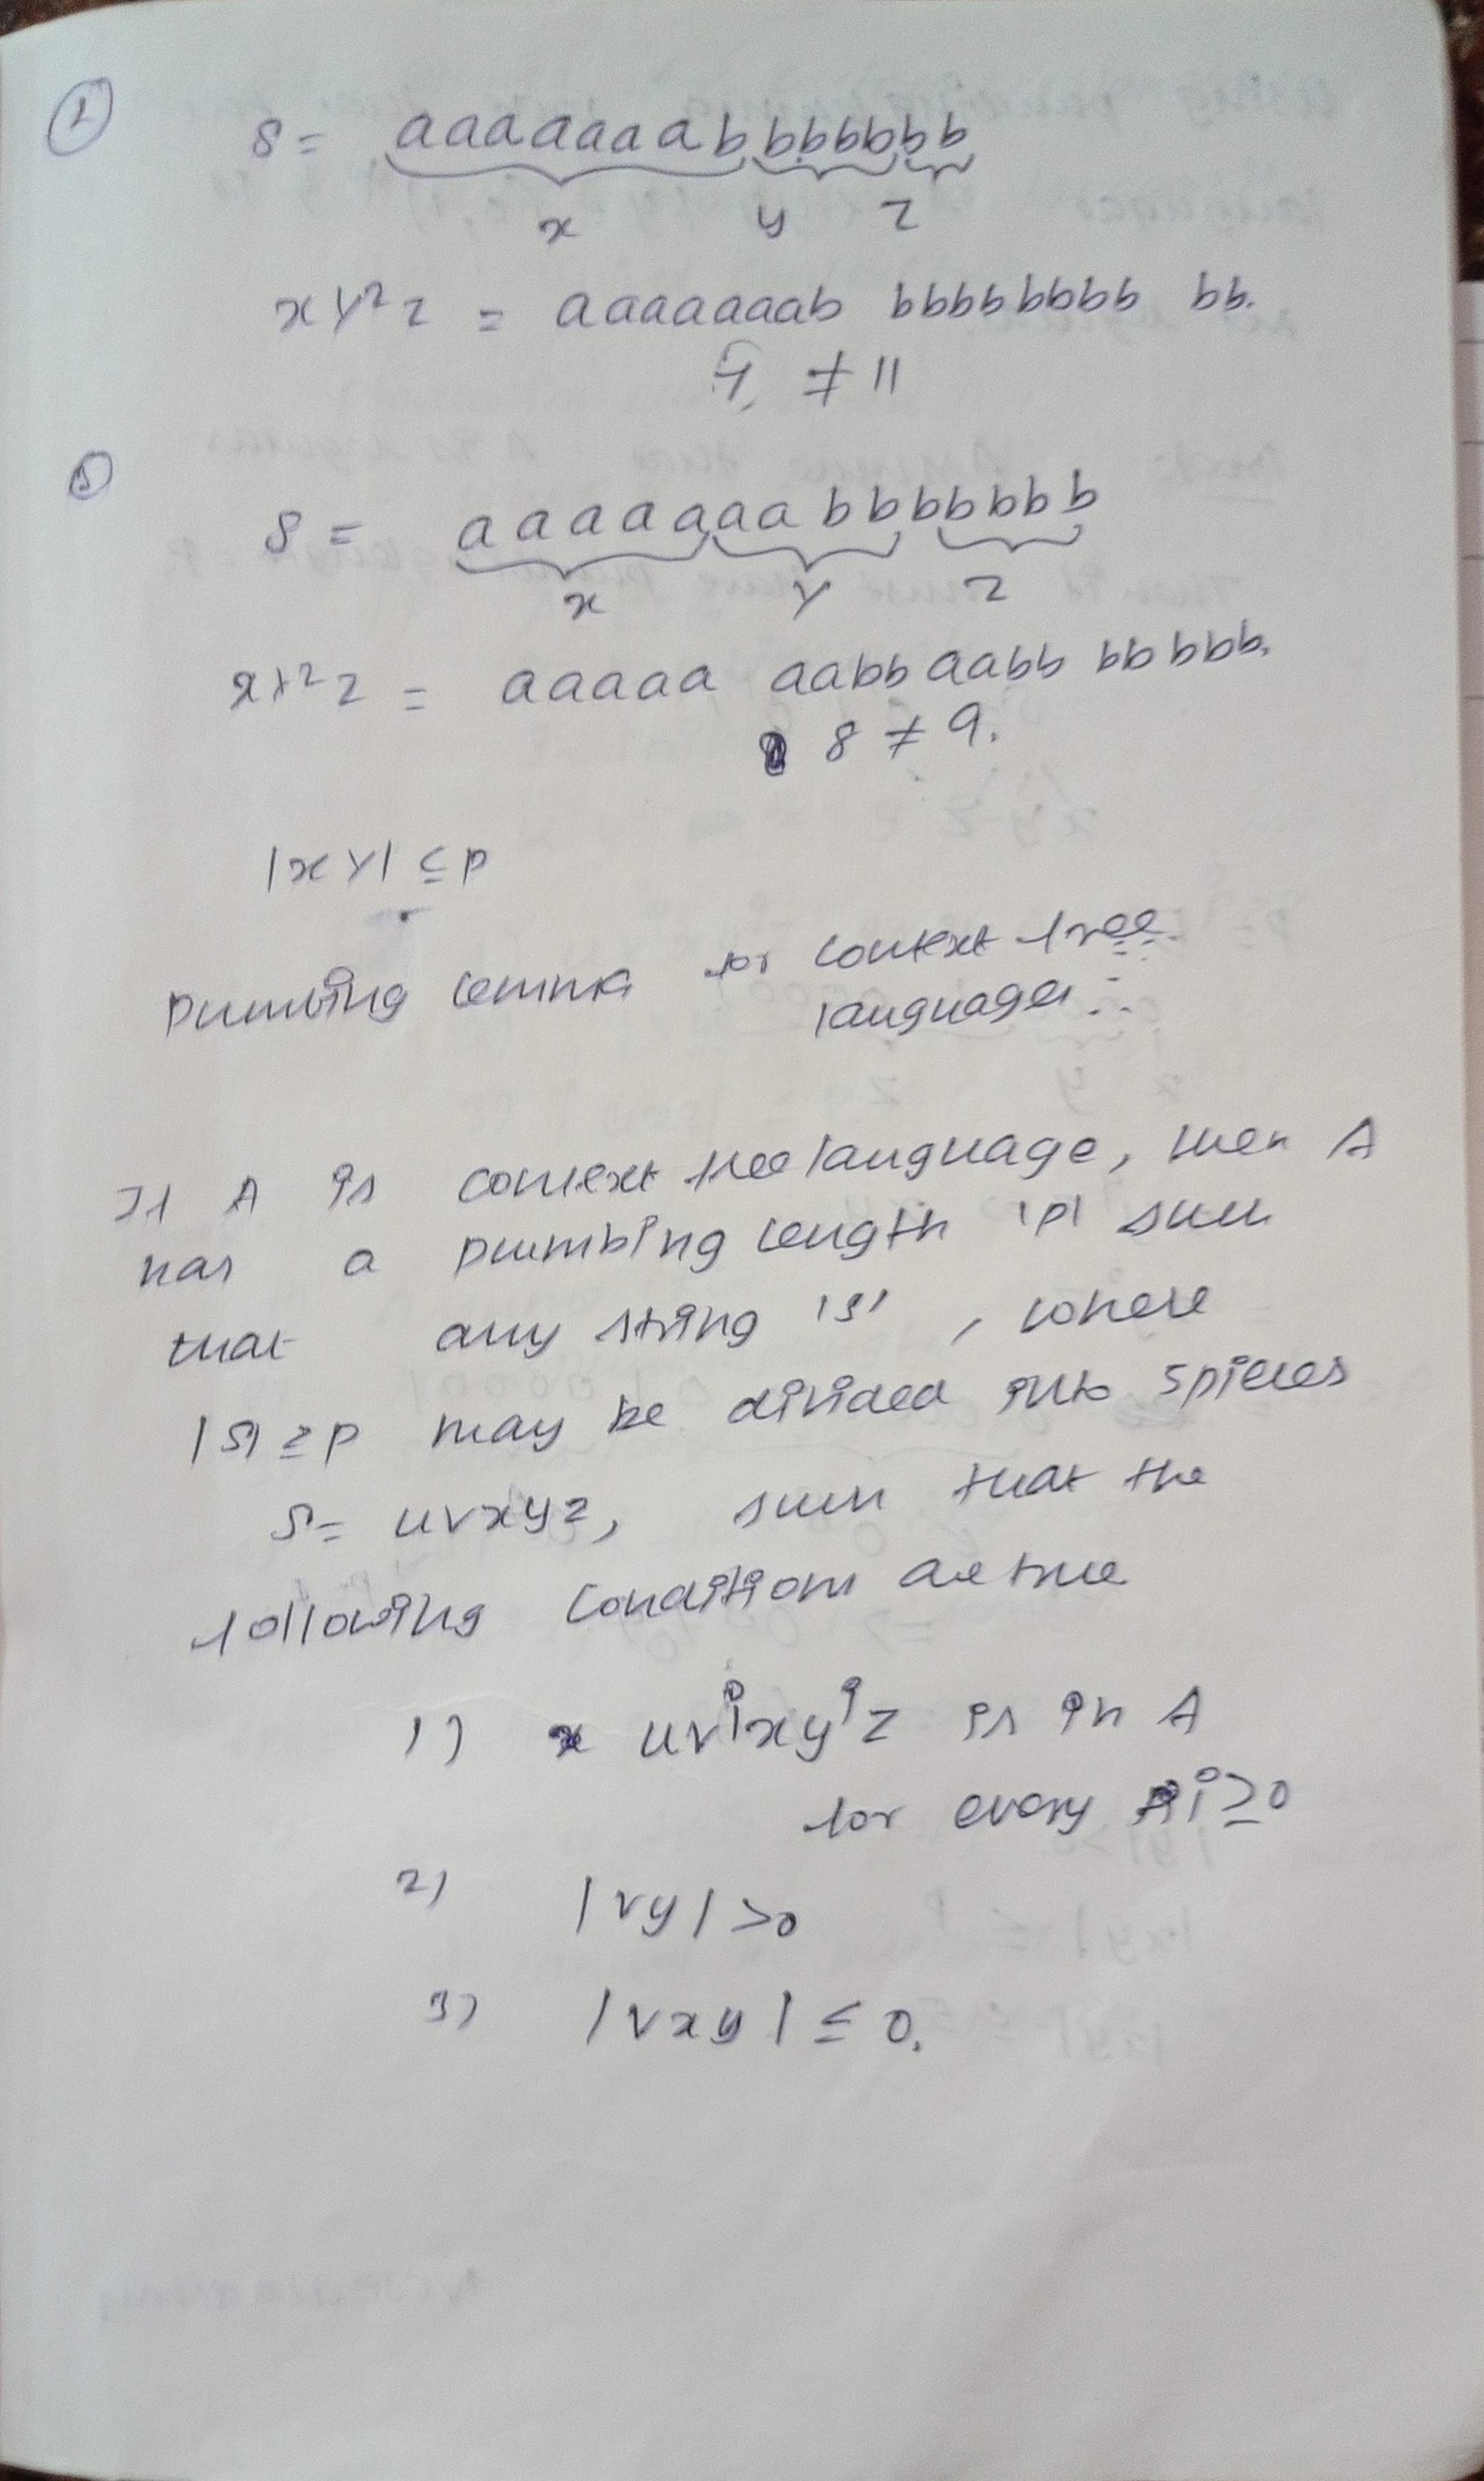 ①
S = aaaaaaabbbbbbb
x y z
xy²z = aaaaaaab bbbbbbbb bb.
7 ≠ 11
S = aaaaaaabbbbbbb
x y z
xy²z = aaaaa aabb aabb bbbbb.
8 ≠ 9.
|xy| ≤ p
pumbing lemma for context free
languages :-
If A is context free language, then A
has a pumbing length 'p' such
that any string 's' , where
|S| ≥ p may be divided into 5 pieces
S = uvxyz, such that the
following conditions are true
1) uvⁱxyⁱz is in A
for every i ≥ 0
2) |vy| > 0
3) |vxy| ≤ 0.